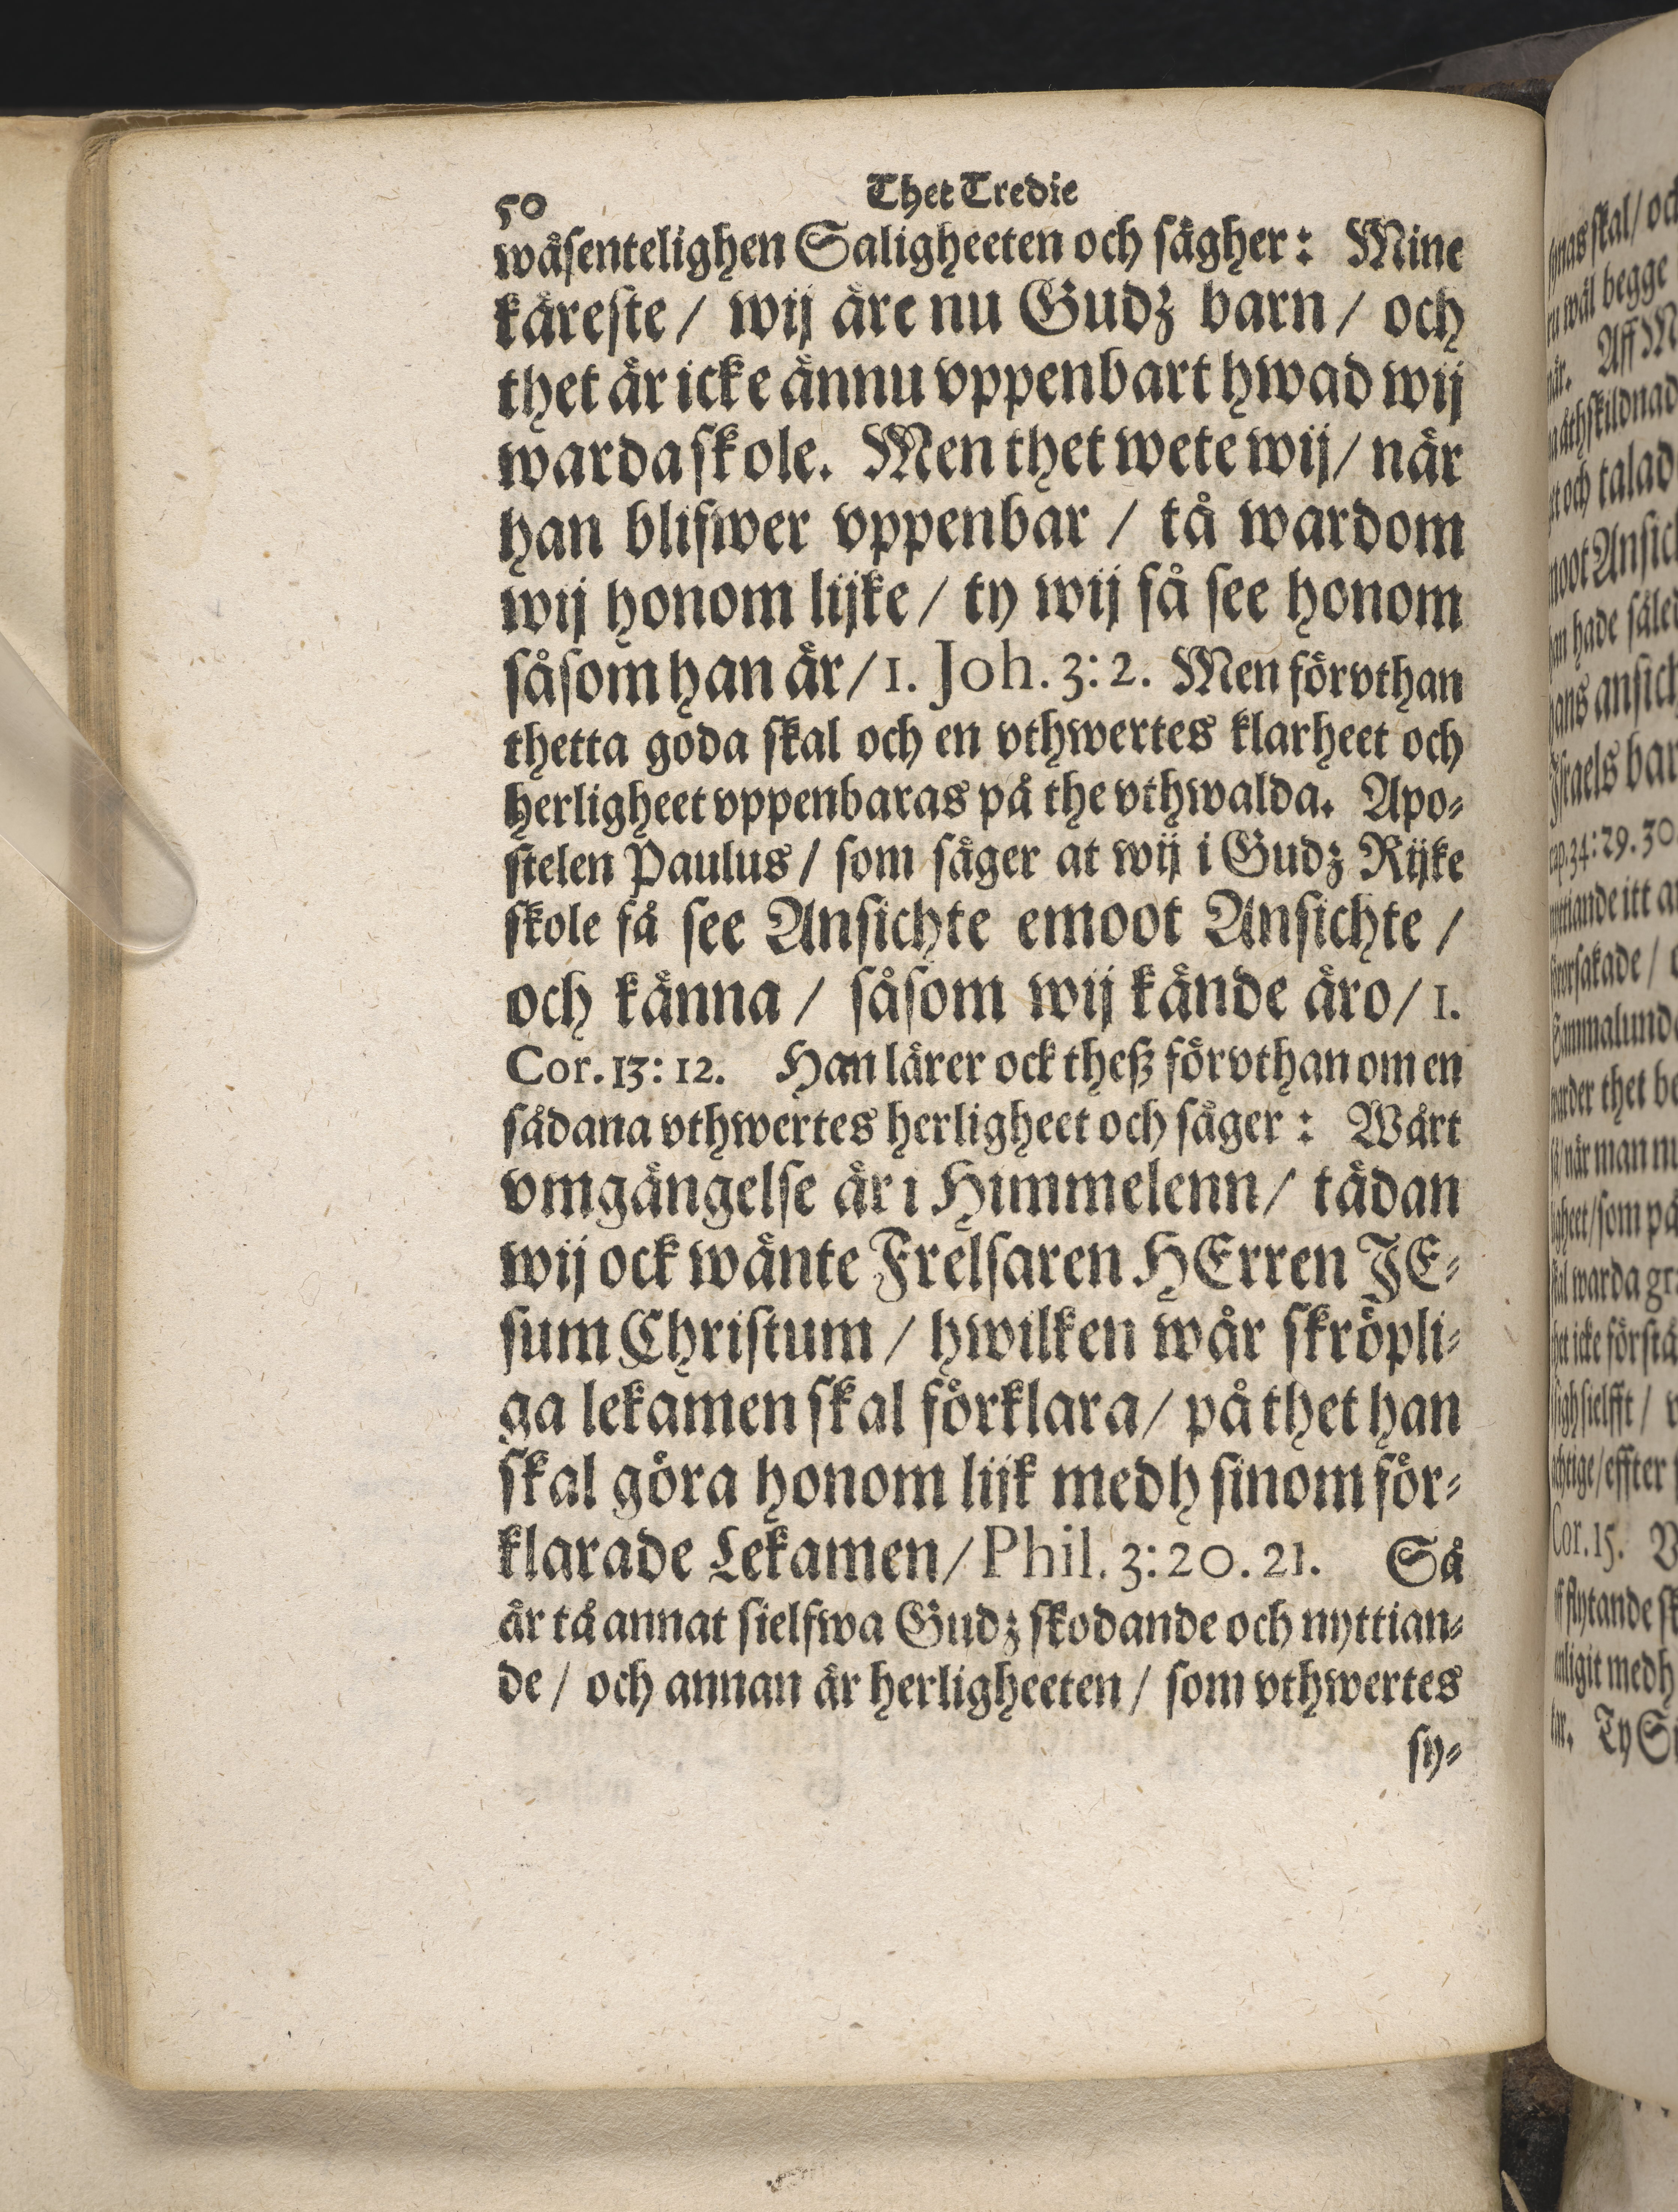 50 Thet Tredie
wåsentelighen Saligheeten och sägher: Mine
käreste / wij äre nu Gudz barn / och
thet är icke ännu vppenbart hwad wij
warda skole. Men thet wete wij / när
han blifwer vppenbar / tå wardom
wij honom lijke / ty wij få see honom
såsom han är / 1. Joh. 3: 2. Men förvthan
thetta goda skal och en vthwertes klarheet och
herligheet vppenbaras på the vthwalda. Apo-
stelen Paulus / som säger at wij i Gudz Rijke
skole få see Ansichte emoot Ansichte /
och känna / såsom wij kände äro / 1.
Cor. 13: 12. Han lärer ock theß förvthan om en
sådana vthwertes herligheet och säger: Wårt
vmgängelse är i Himmelenn / tädan
wij ock wänte Frelsaren HErren JE-
sum Christum / hwilken wår skröpli-
ga lekamen skal förklara / på thet han
skal göra honom lijk medh sinom för-
klarade Lekamen / Phil. 3: 20. 21. Så
är tå annat sielfwa Gudz skodande och nyttian-
de / och annan är herligheeten / som vthwertes
sy-